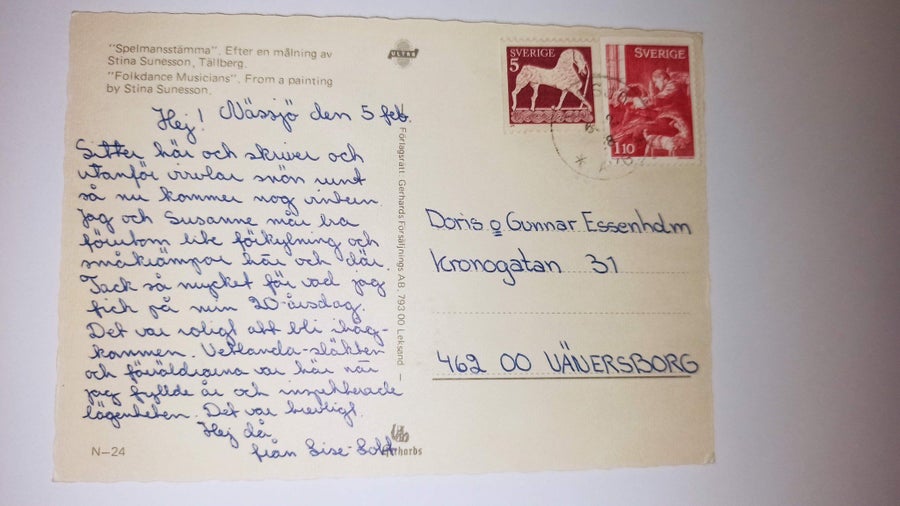 "Spelmansstämma". Efter en målning av
Stina Sunesson, Tällberg.
"Folkdance Musicians". From a painting
by Stina Sunesson.
ULTRA
Hej! Nässjö den 5 feb.
Sitter här och skriver och
utanför virvlar snön runt
så nu kommer nog vintern.
Jag och Susanne mår bra
förutom lite förkylning och
småkrämpor här och där.
Tack så mycket för vad jag
fick på min 20-årsdag.
Det var roligt att bli ihåg-
kommen. Vetlanda-släkten
och föräldrarna var här när
jag fyllde år och inspekterade
lägenheten. Det var trevligt.
Hej då
från Lise-Lott
N-24
Gerhards
Förlagsrätt Gerhards Försäljnings AB, 793 00 Leksand —
SVERIGE
5
SVERIGE
1 10
Doris o Gunnar Essenholm
Kronogatan 31
462 00 VÄNERSBORG